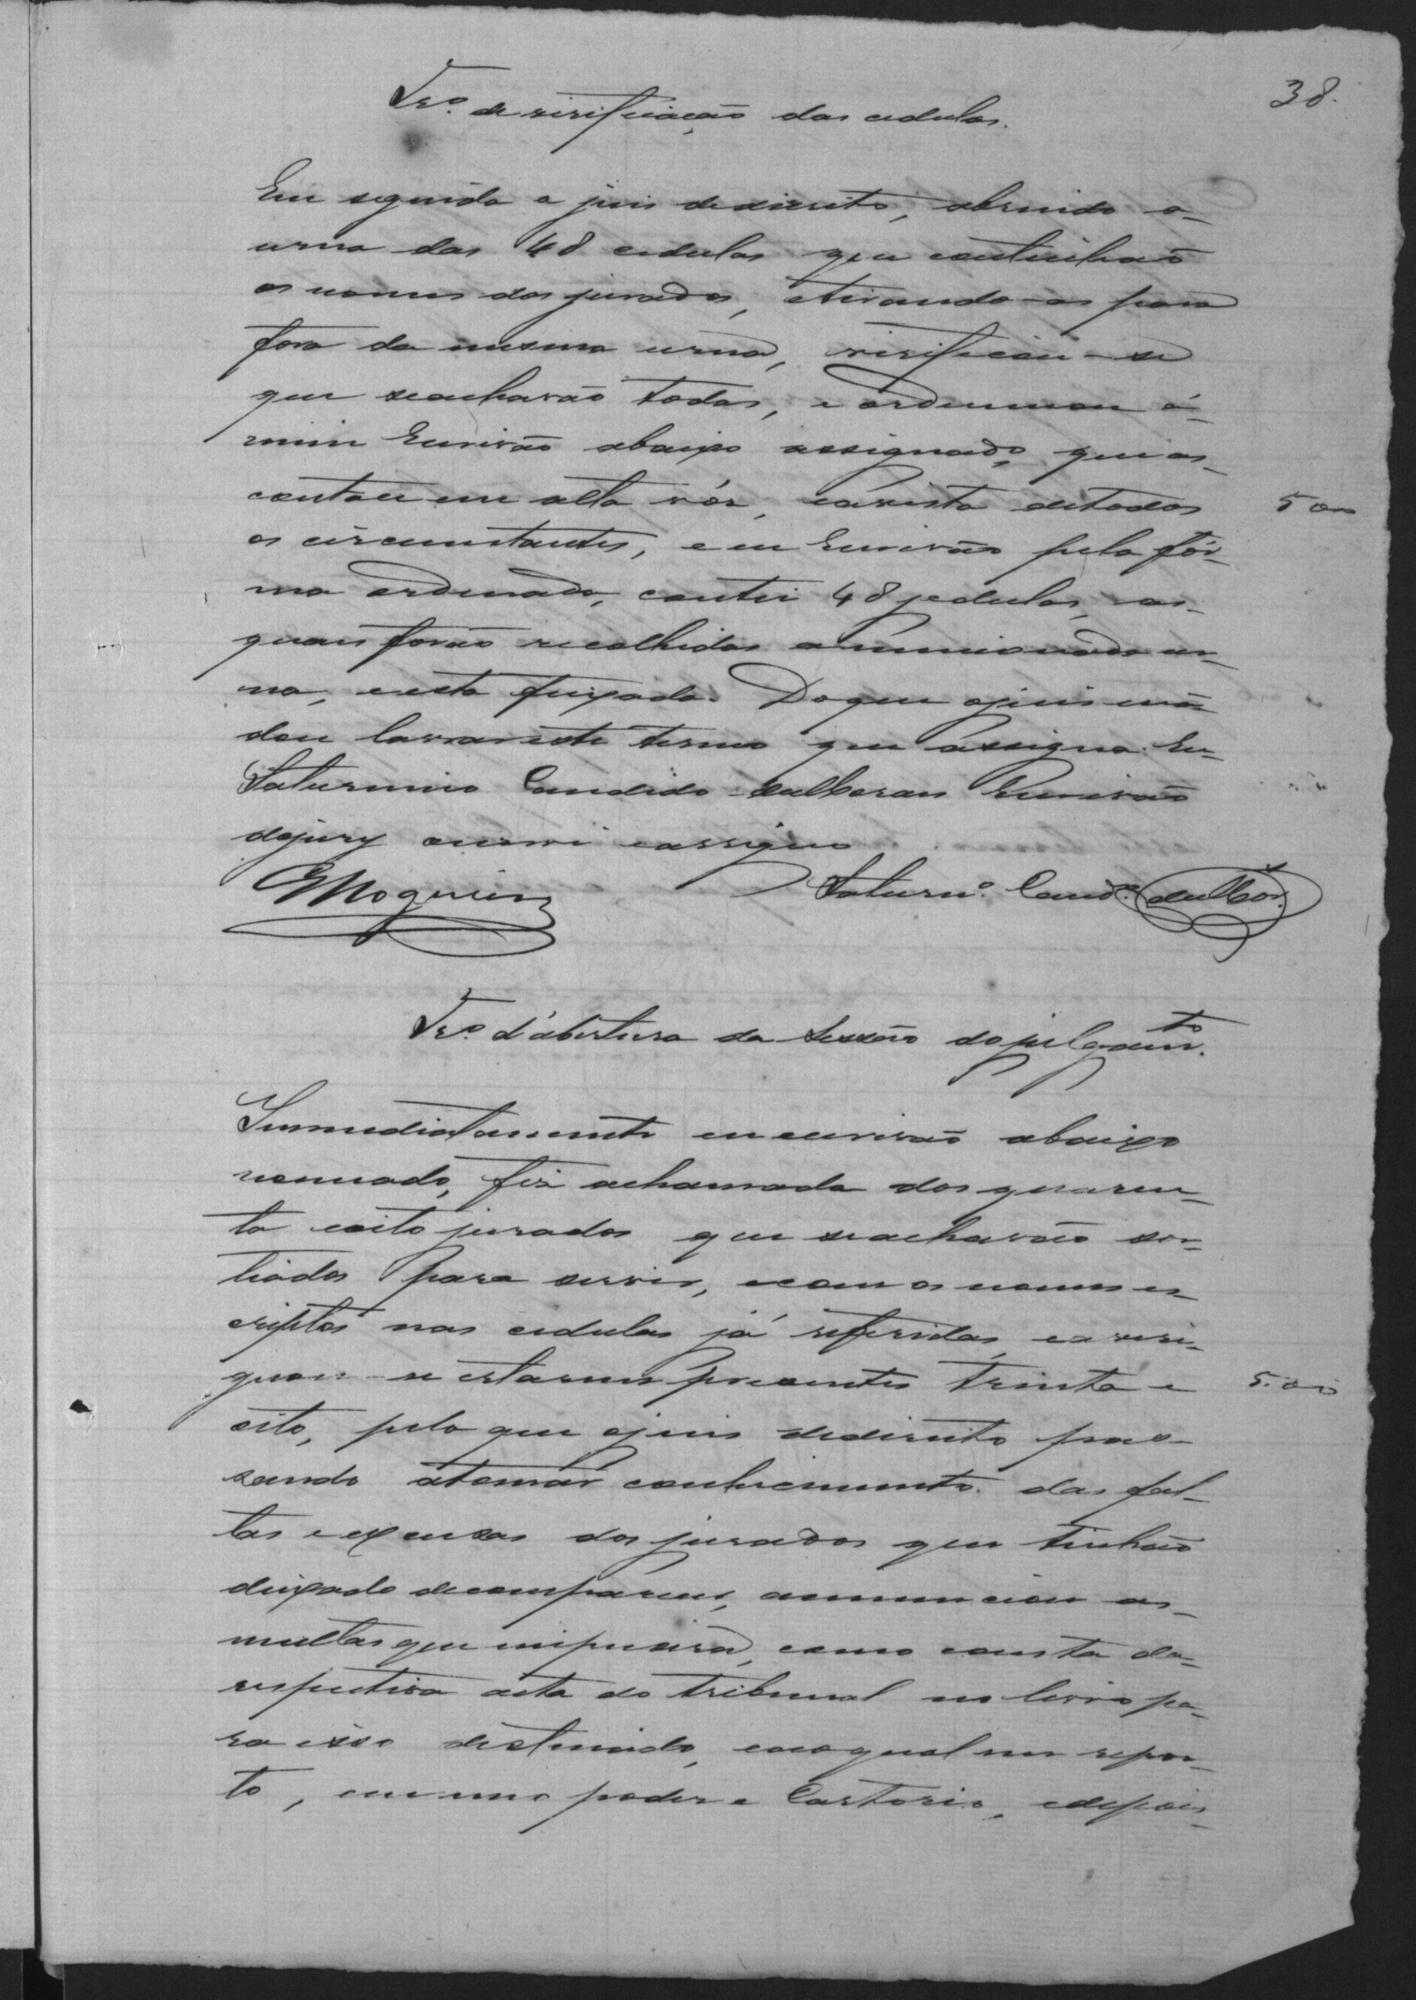 38.
Tr.º de virificação das cedulas.
Em seguida o juis de direito, abrindo a
urna das 48 cedulas que continhão
os nomes dos jurados, etirando-as para
fora da mesma urna, virificou-se
que seachavão todas, e ordennou á
mim Escrivão abaixo assignado, que as
contou em alta vós, eavista detodos
os circumstantes, e eu Escrivão pela fór-
ma ordenada, contei 48 sedulas, as
quais forão recolhidas a mencionada ur-
na, e esta feixada. Do que o juis man
dou lavrar este termo que assigna. Eu
Saturnino Candido Escrivão
dojury escrevi eassigno
Saturn.º Cand.º
Tr.º d'abertura da sessão do julgam.to
Immediatamente eu escrivão abaixo
nomiado, fiz achamada dos quaren-
ta eoito jurados que seachavão sor-
tiados para servir, ecom os nomes es
criptos nas cedulas já referidas, eaviri-
guou-se estarem presentes trinta e
oito, pelo que o juis dedireito pas-
sando atomar conhecimento das fal-
tas e excusas dos jurados que tinhão
deixado decomparecer, annunciou as
multas que impusera, como consta da
respectiva acta do tribunal no livro pa-
ra isso destinado, eaoqual me repor-
to, em meo poder e Cartorio, edepois
500
500